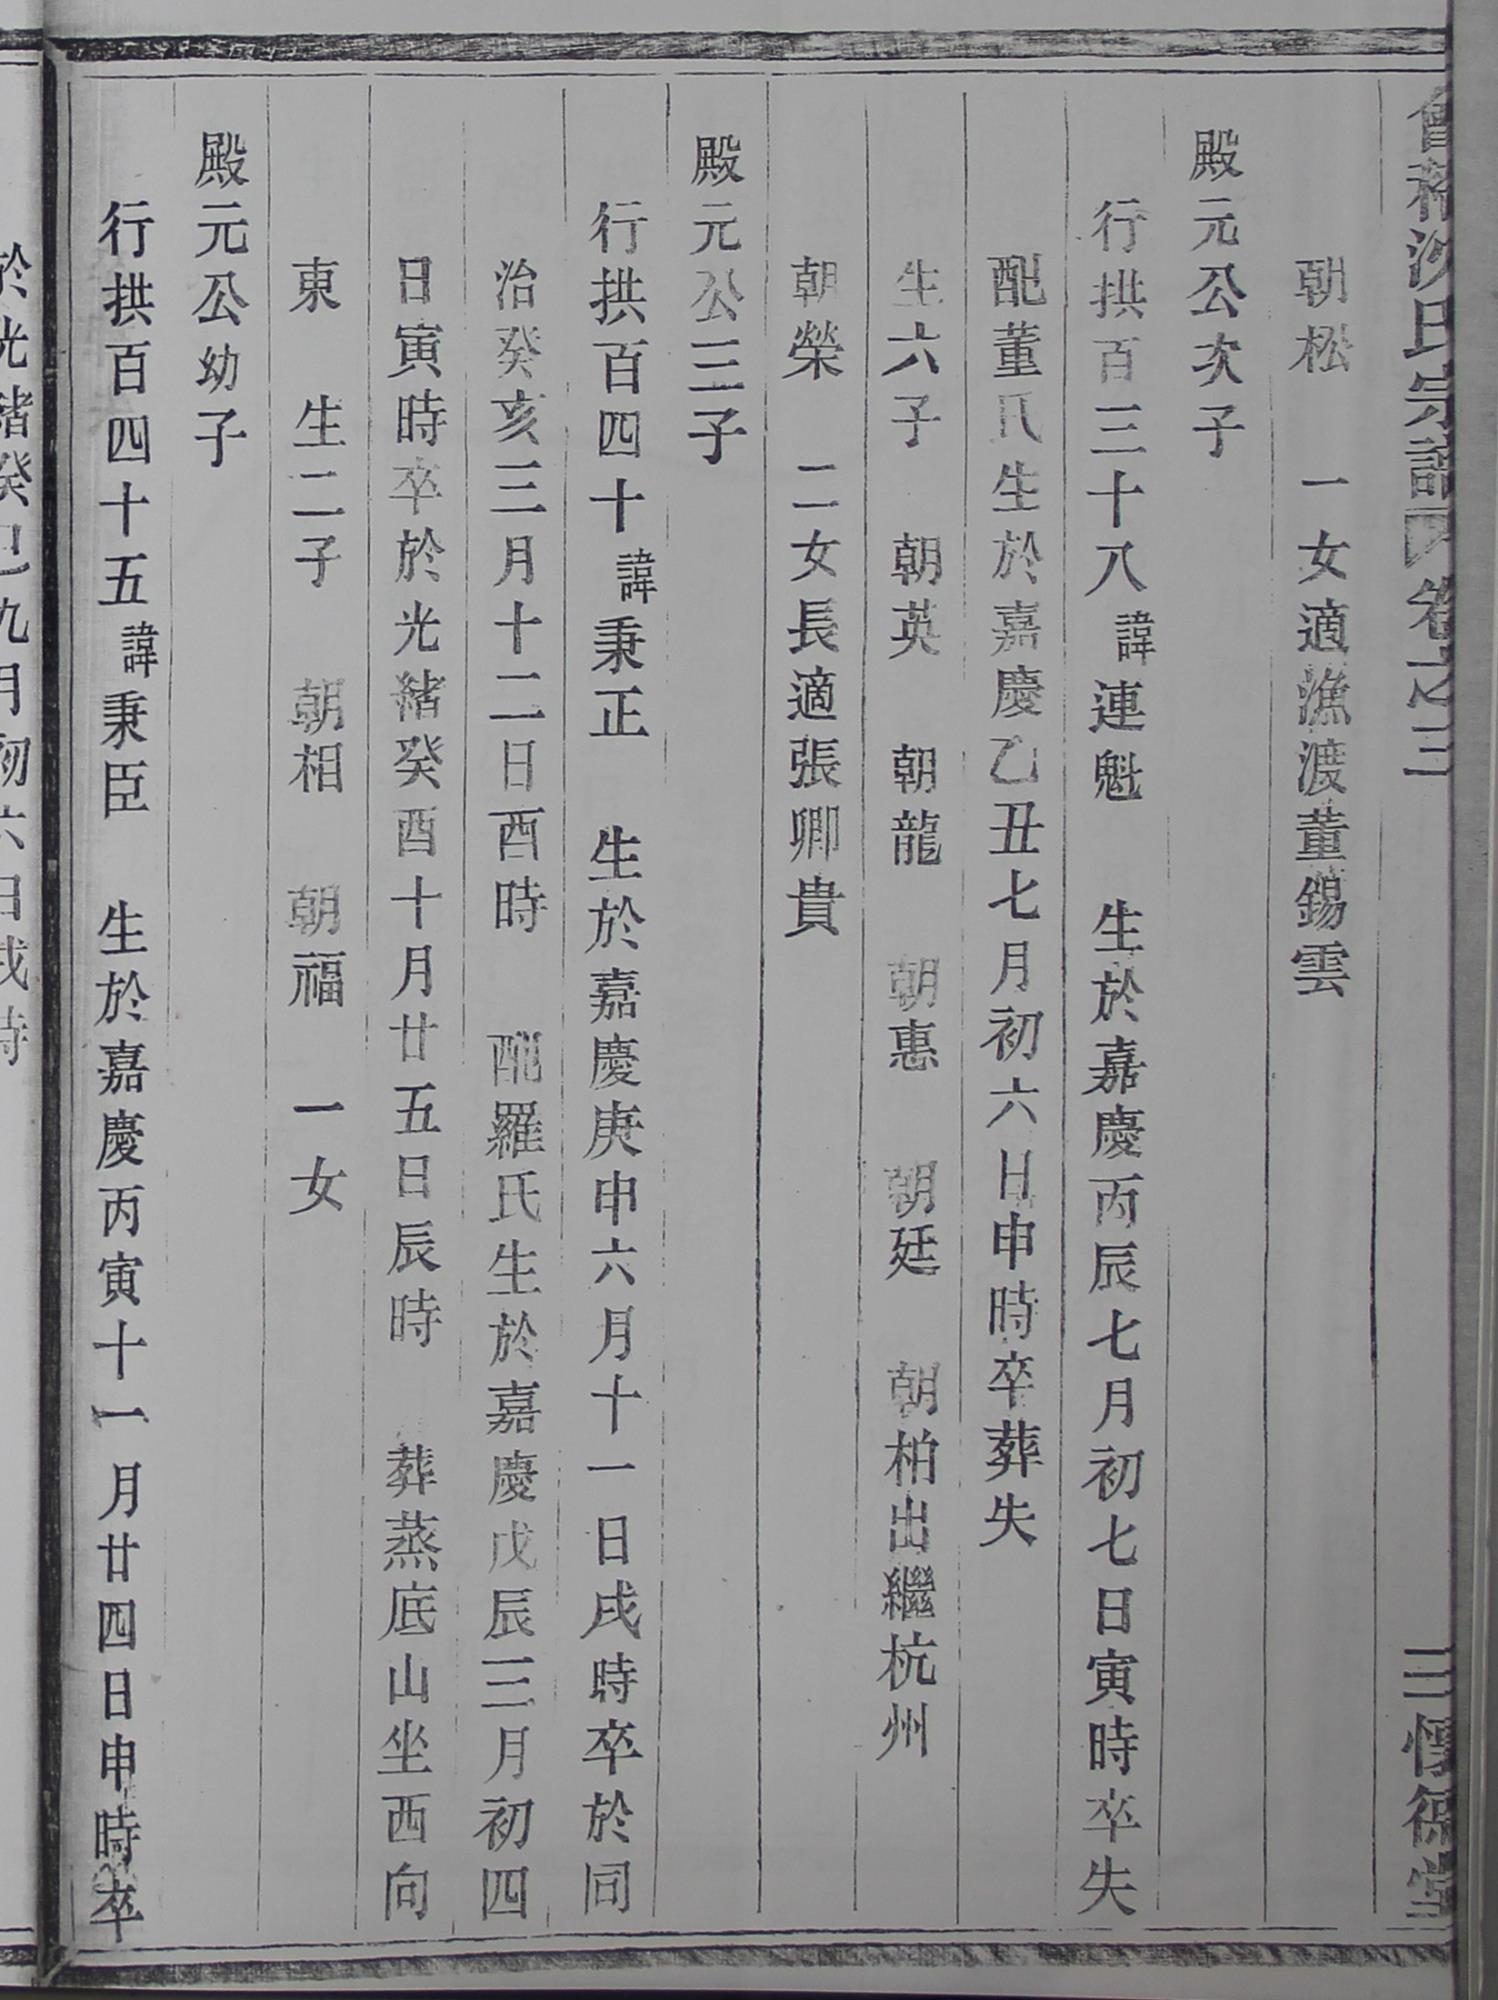 會稽沈氏宗譜 卷之三 三 懷德堂
朝松 一女適漁渡董錫雲
殿元公次子
行拱百三十八諱連魁 生於嘉慶丙辰七月初七日寅時卒失
配董氏生於嘉慶乙丑七月初六日申時卒葬失
生六子 朝英 朝龍 朝惠 朝廷 朝柏出繼杭州
朝榮 二女長適張卿貴
殿元公三子
行拱百四十諱秉正 生於嘉慶庚申六月十一日戌時卒於同
治癸亥三月十二日酉時 配羅氏生於嘉慶戊辰三月初四
日寅時卒於光緒癸酉十月廿五日辰時 葬蒸底山坐西向
東 生二子 朝相 朝福 一女
殿元公幼子
行拱百四十五諱秉臣 生於嘉慶丙寅十一月廿四日申時卒
於光緒癸巳九月初六日戌時